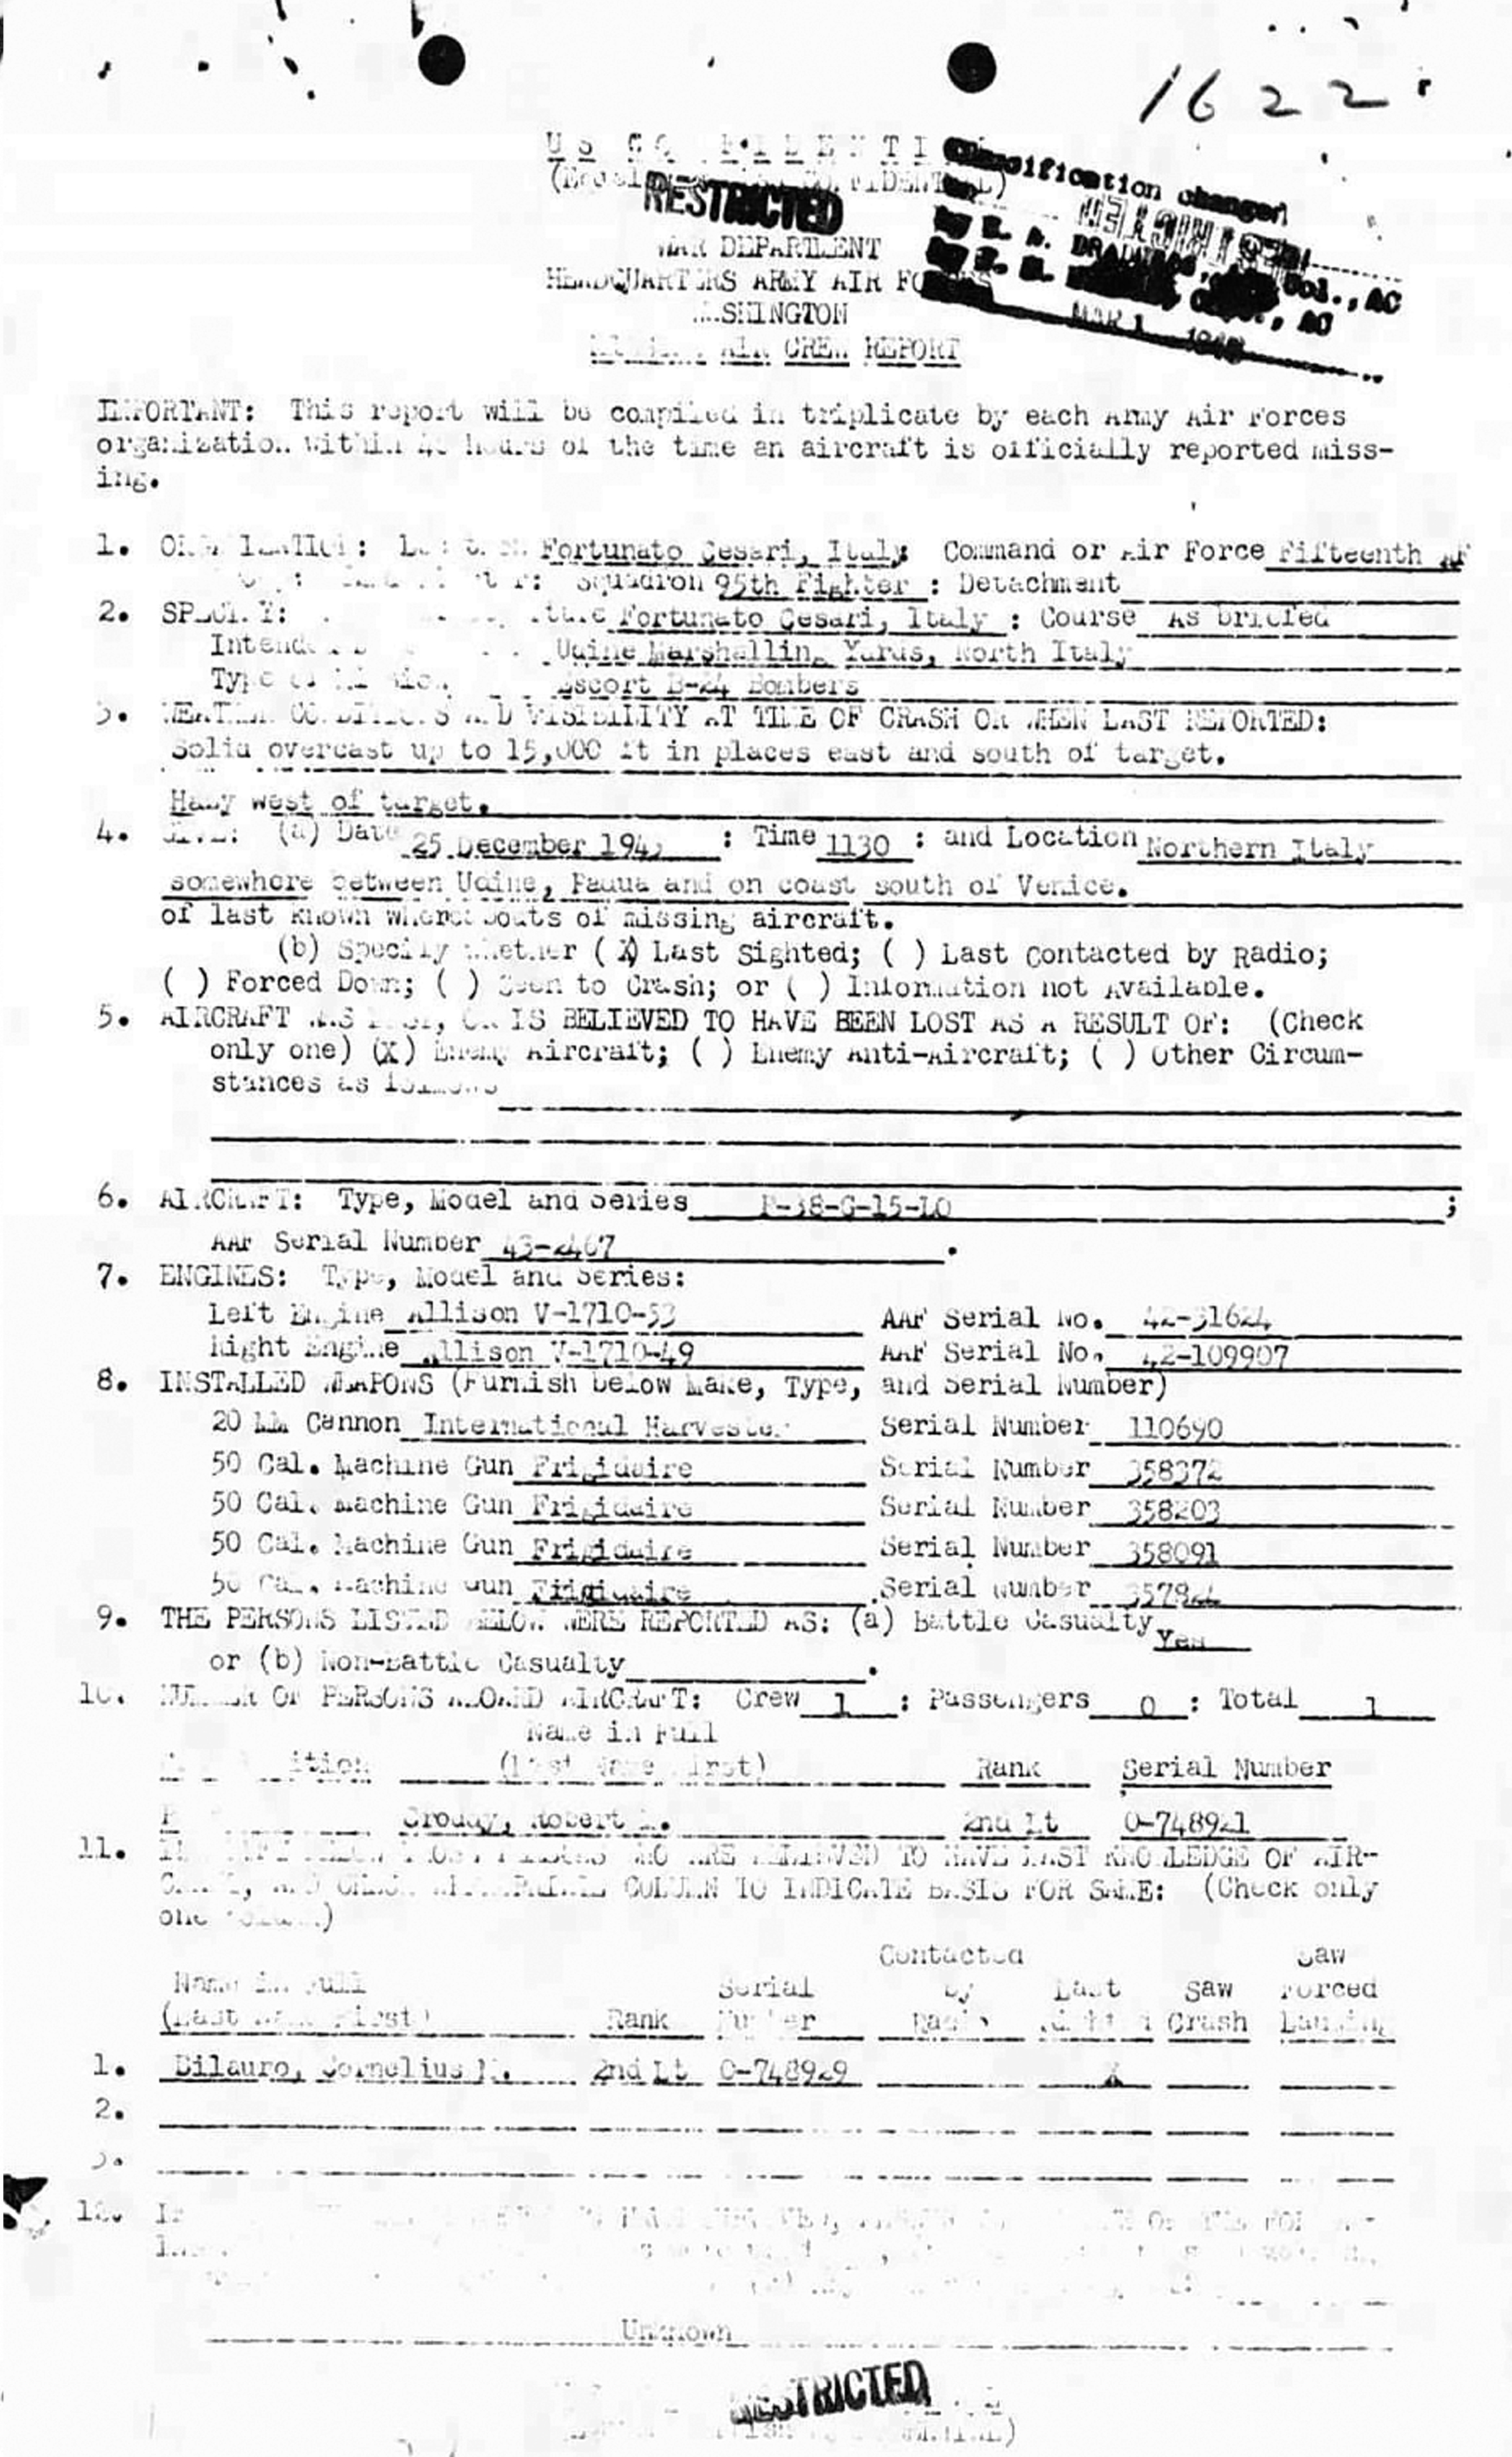 1622
U S
RESTRICTED
Classification changed
RESTRICTED
Col., AC
AC
MAR 1
WAR DEPARTMENT
HEADQUARTERS ARMY AIR FORCES
WASHINGTON
AIR CREW REPORT
IMPORTANT: This report will be compiled in triplicate by each Army Air Forces
organization within 48 hours of the time an aircraft is officially reported miss-
ing.
1. ORGANIZATION: Location Fortunato Cesari, Italy; Command or Air Force Fifteenth AF
Squadron 95th Fighter : Detachment
2. SPECIFY: Fortunato Cesari, Italy : Course As briefed
Intended Udine Marshalling Yards, North Italy
Type of Mission Escort B-24 Bombers
3. WEATHER CONDITIONS AND VISIBILITY AT TIME OF CRASH OR WHEN LAST REPORTED:
Solid overcast up to 15,000 ft in places east and south of target.
Hazy west of target.
4. GIVE: (a) Date 25 December 1943 : Time 1130 : and Location Northern Italy
somewhere between Udine, Padua and on coast south of Venice.
of last known whereabouts of missing aircraft.
(b) Specify whether (X) Last Sighted; ( ) Last Contacted by Radio;
( ) Forced Down; ( ) Seen to Crash; or ( ) Information not Available.
5. AIRCRAFT WAS LOST, OR IS BELIEVED TO HAVE BEEN LOST AS A RESULT OF: (Check
only one) (X) Enemy Aircraft; ( ) Enemy Anti-Aircraft; ( ) Other Circum-
stances as follows
6. AIRCRAFT: Type, Model and Series P-38-G-15-LO ;
AAF Serial Number 43-2467 .
7. ENGINES: Type, Model and Series:
Left Engine Allison V-1710-53 AAF Serial No. 42-31624
Right Engine Allison V-1710-49 AAF Serial No. 42-109907
8. INSTALLED WEAPONS (Furnish below Make, Type, and Serial Number)
20 MM Cannon International Harvester Serial Number 110690
50 Cal. Machine Gun Frigidaire Serial Number 358372
50 Cal. Machine Gun Frigidaire Serial Number 358203
50 Cal. Machine Gun Frigidaire Serial Number 358091
50 Cal. Machine Gun Frigidaire Serial Number 357824
9. THE PERSONS LISTED BELOW WERE REPORTED AS: (a) Battle Casualty Yes
or (b) Non-Battle Casualty .
10. NUMBER OF PERSONS ABOARD AIRCRAFT: Crew 1 : Passengers 0 : Total 1
Name in Full
(Last Name First) Rank Serial Number
Robert 2nd Lt O-748921
11. THOSE PERSONS WHO ARE BELIEVED TO HAVE LAST KNOWLEDGE OF AIR-
CRAFT, AND CHECK APPROPRIATE COLUMN TO INDICATE BASIS FOR SAME: (Check only
one
Contacted Saw
Name in Full Serial by Last Saw Forced
(Last Name First) Rank Number Radio Sighted Crash Landing
1. Dilauro, Cornelius 2nd Lt O-748929 X
2.
3.
12.
Unknown
RESTRICTED